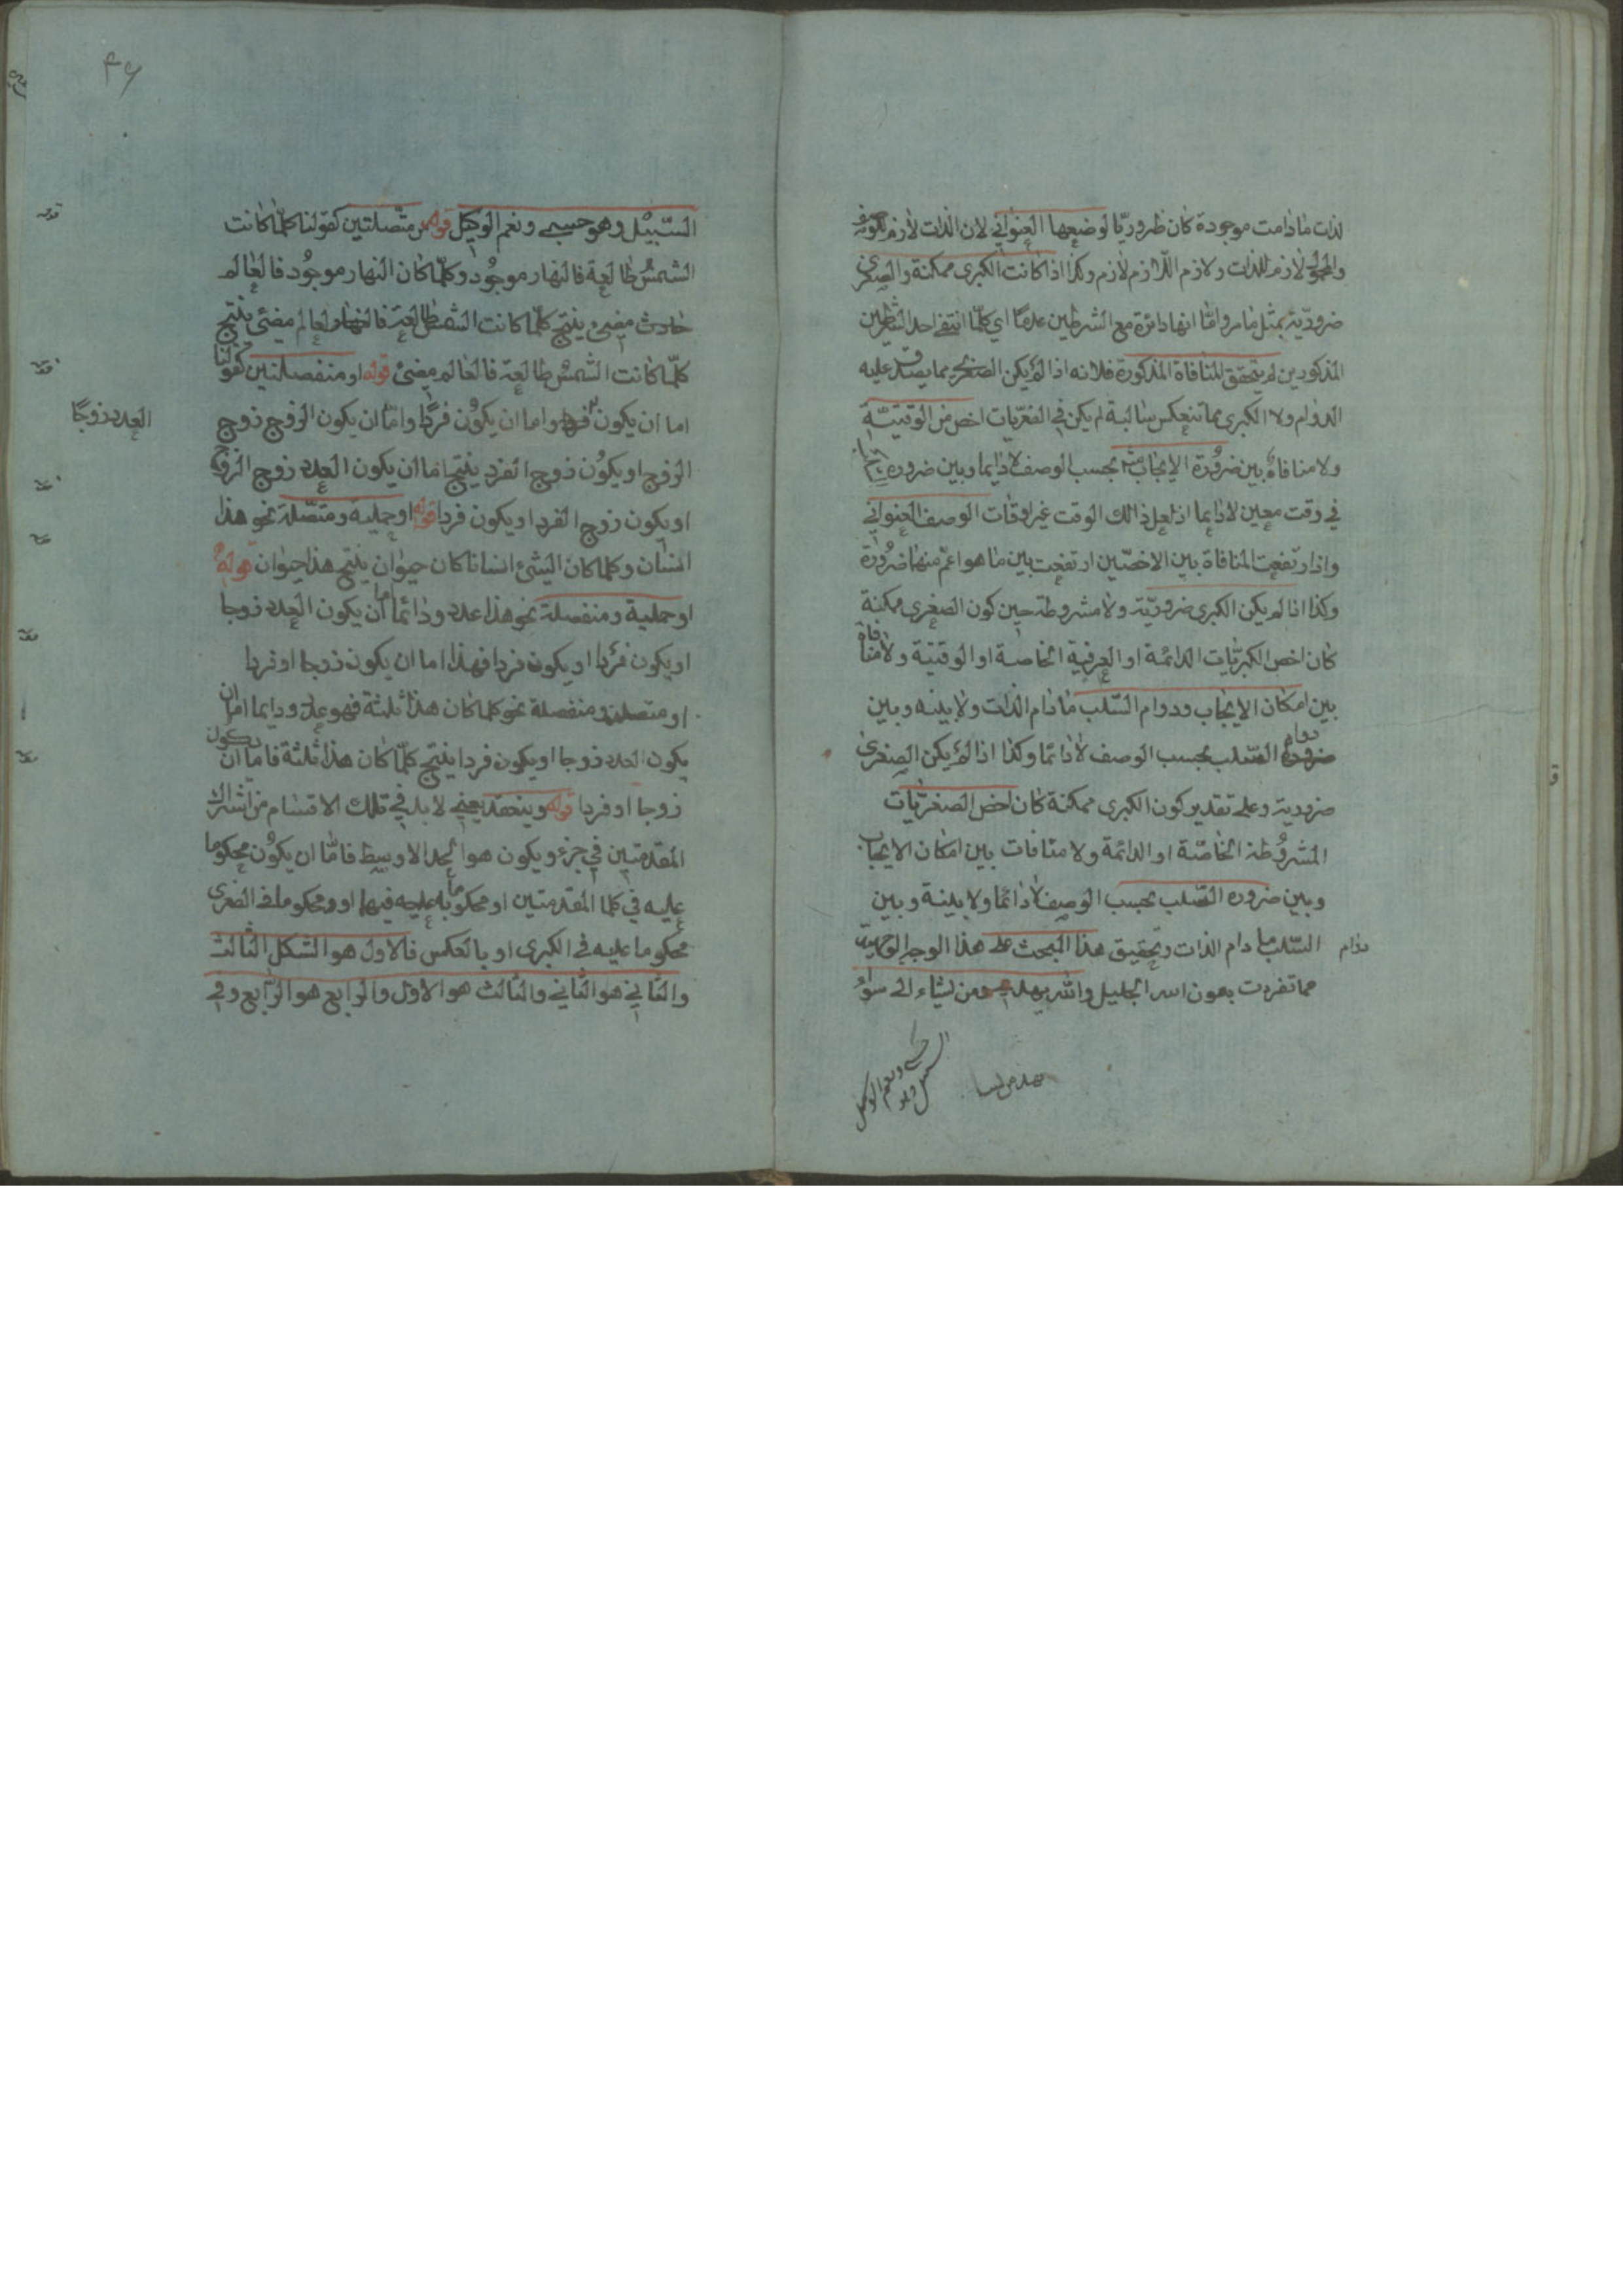 لذات مادامت موجودة كان ظروريّا لوضعها العنوانى لان الذات لازم للوصف
والمحمول لازم للذات ولازم اللازم لازم وكذا اذا كانت الكبرى ممكنة والصغرى
ضروريّة بمثل ما مر وامّا انها دائرة مع الشرطين عدمًا اي كلّما انتفى احد الشرطين
المذكورين لم يتحقق المنافاة المذكورة فلانه اذا لم يكن الصغرى مما يصدق عليه
الدوام ولا الكبرى مما تنعكس سالبة لم يكن في الصغريات اخص من الوقتيّة
ولا منافاة بين ضرورة الايجاب بحسب الوصف لا دايما وبين ضرورة
في وقت معين لا دايما اذ لعل ذالك الوقت غير اوقات الوصف العنواني
واذا ارتفعت المنافاة بين الاخصّين ارتفعت بين ما هو اعمّ منها ضرورة
وكذا اذا لم يكن الكبرى ضروريّة ولا مشروطة حين كون الصغرى ممكنة
كان اخص الكبريّات الدائمة او العرفية الخاصة او الوقتية ولا منافاة
بين امكان الايجاب ودوام السّلب مادام الذات ولا بينه وبين
دوام السّلب بحسب الوصف لا دائما وكذا اذا لم يكن الصغرى
ضرورية وعلى تقدير كون الكبرى ممكنة كان اخص الصغريّات
المشروطة الخاصّة او الدائمة ولا منافات بين امكان الايجاب
وبين ضروره السّلب بحسب الوصف لا دائما ولا بينة وبين
دوام
السّلب ما دام الذات وتحقيق هذا البحث على هذا الوجه الوجيه
مما تفردت بعون الله الجليل والله يهدي من يشاء الى سواء
السبيل وهو حسبي ونعم الوكيل
٤٦
السّبيل وهو حسبي ونعم الوكيل قوله من متّصلتين كقولنا كلّما كانت
الشمس طالعة فالنهار موجود وكلّما كان النهار موجود فالعالم
حادث مضىء ينتج كلّما كانت الشمس طالعة فالعالم مضىء ينتج
كلّما كانت الشّمس طالعة فالعالم مضىء قوله او منفصلتين كقولنا
العدد زوجًا
اما ان يكون واما ان يكون فردًا وامّا ان يكون الزوج زوج
الزوج او يكون زوج الفرد ينتج اما ان يكون العدد زوج الزوج
او يكون زوج الفرد او يكون فردا قوله او حملية ومتّصلة نحو هذا
انسان وكلما كان الشئ انسانا كان حيوان ينتج هذا حيوان قوله
او حملية ومنفصلة نحو هذا عدد ودائما اما ان يكون العدد زوجا
او يكون فردا او يكون فردا فهذا اما ان يكون زوجا او فردا
او متصلة ومنفصلة نحو كلما كان هذا ثلثة فهو عدد ودايما اما ان
يكون العدد زوجا او يكون فردا ينتج كلّما كان هذا ثلثة فاما ان يكون
زوجا او فردا قوله وينعقد يعني لا بد في تلك الاقسام من اشتراك
المقدمتين في جزء ويكون هو الحد الاوسط فامّا ان يكون محكوما
عليه في كلتا المقدمتين او محكوما به فيهما او محكوما في الصغرى
محكوما عليه في الكبرى او بالعكس فالاول هو الشكل الثالث
والثاني هو الثاني والثالث هو الاول والرابع هو الرّابع وفي